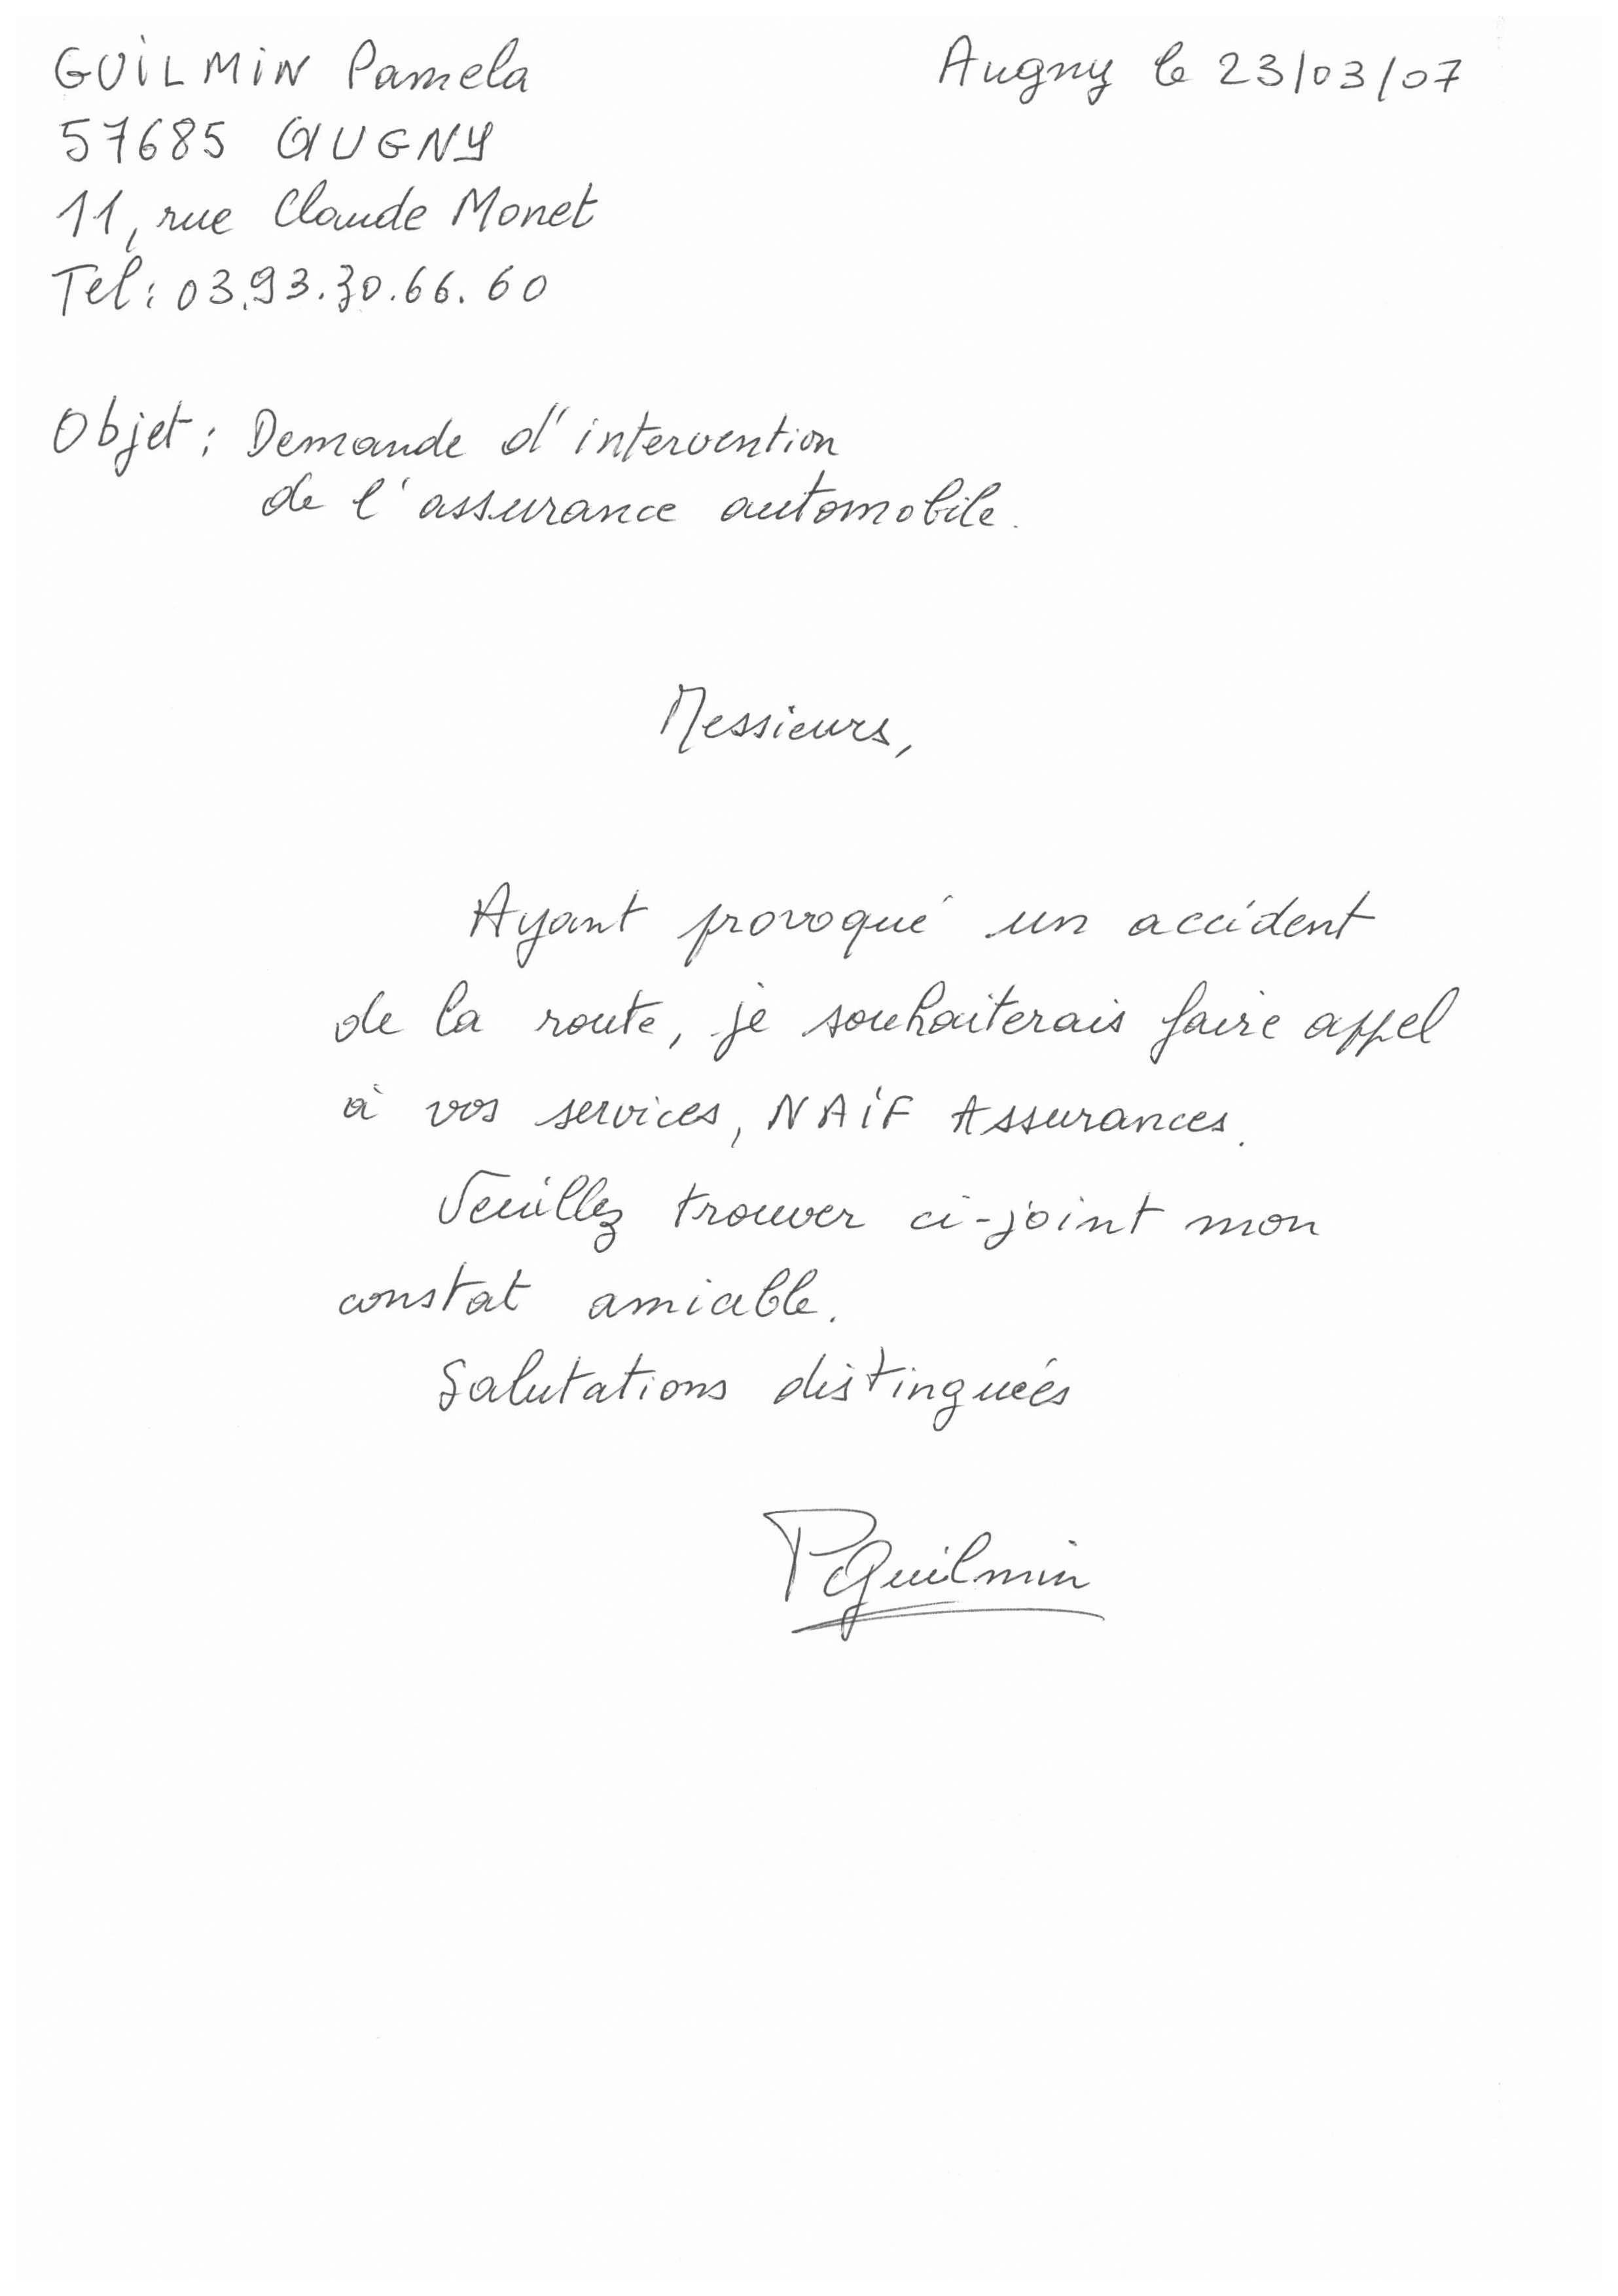 GUILMIN Pamela
Augny le 23/03/07
57685 AUGNY
11, rue Claude Monet
Tel: 03.93.30.66.60
Objet: Demande d'intervention
de l'assurance automobile.
Messieurs,
Ayant provoqué un accident
de la route, je souhaiterais faire appel
à vos services, NAIF Assurances.
Veuillez trouver ci-joint mon
constat amiable.
Salutations distinguées
PGuilmin